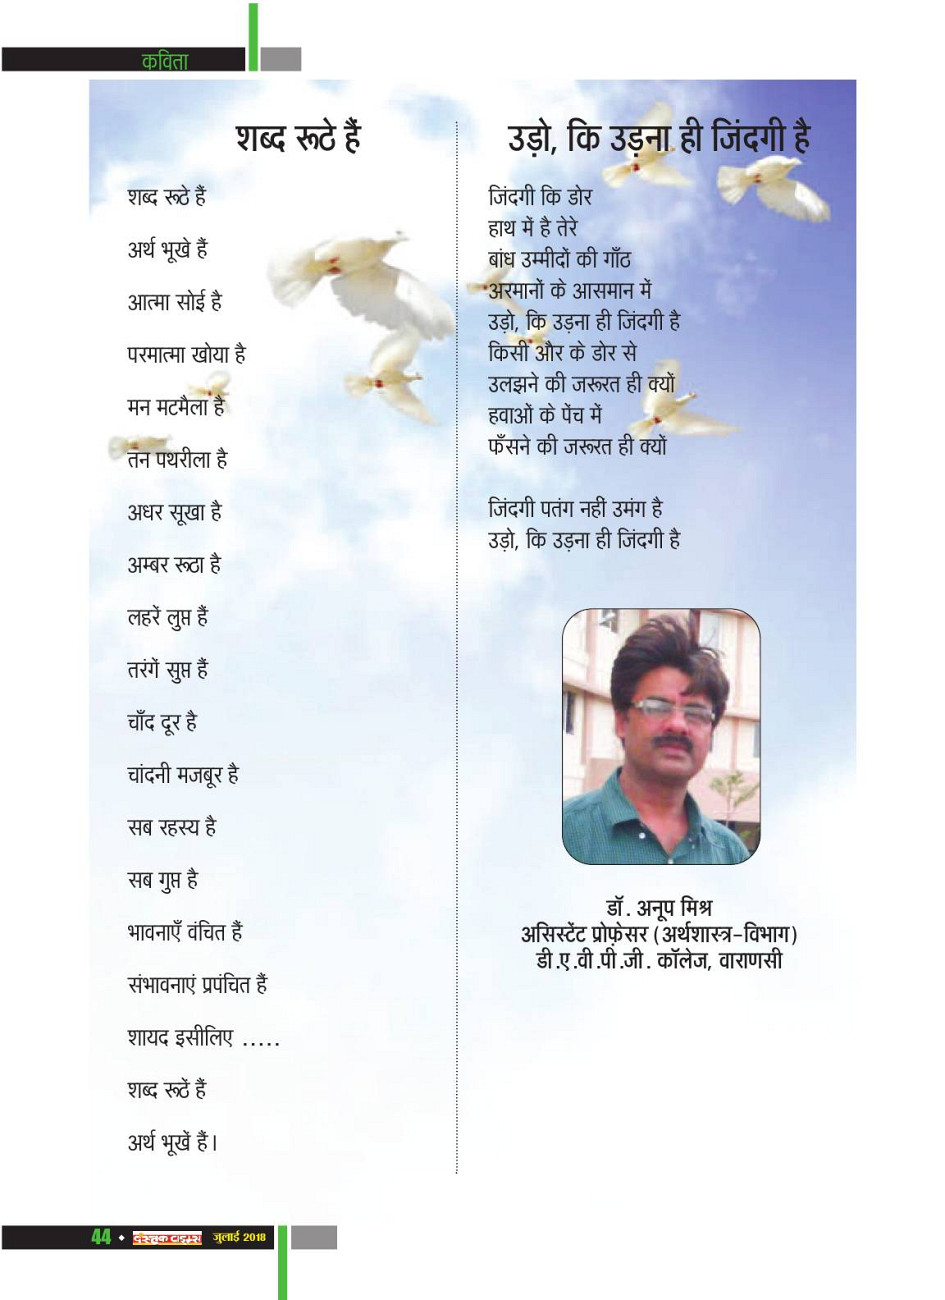 कविता
शब्द रूठे हैं
शब्द रूठे हैं
अर्थ भूखे हैं
आत्मा सोई है
परमात्मा खोया है
मन मटमैला है
तन पथरीला है
अधर सूखा है
अम्बर रूठा है
लहरें लुप्त हैं
तरंगें सुप्त हैं
चाँद दूर है
चांदनी मजबूर है
सब रहस्य है
सब गुप्त है
भावनाएँ वंचित हैं
संभावनाएं प्रपंचित हैं
शायद इसीलिए .....
शब्द रूठें हैं
अर्थ भूखें हैं।
उड़ो, कि उड़ना ही जिंदगी है
जिंदगी कि डोर
हाथ में है तेरे
बांध उम्मीदों की गाँठ
अरमानों के आसमान में
उड़ो, कि उड़ना ही जिंदगी है
किसी और के डोर से
उलझने की जरूरत ही क्यों
हवाओं के पेंच में
फँसने की जरूरत ही क्यों
जिंदगी पतंग नहीं उमंग है
उड़ो, कि उड़ना ही जिंदगी है
डॉ. अनूप मिश्र
असिस्टेंट प्रोफ़ेसर (अर्थशास्त्र-विभाग)
डी.ए.वी.पी.जी. कॉलेज, वाराणसी
44 टाइम्स जुलाई 2018